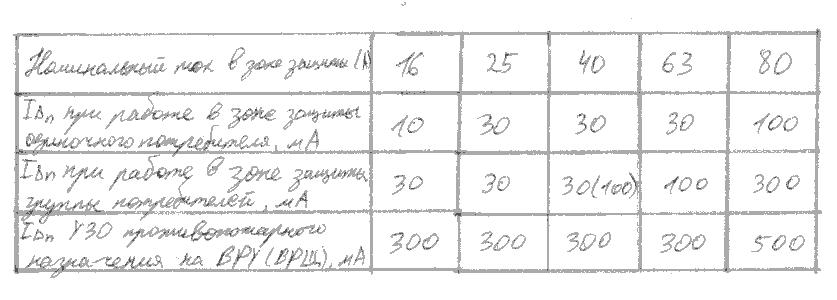 Номинальный ток в зоне защиты (А) 16 25 40 63 80
IΔn при работе в зоне защиты
одиночного потребителя, мА 10 30 30 30 100
IΔn при работе в зоне защиты
группы потребителей, мА 30 30 30(100) 100 300
IΔn УЗО противопожарного
назначения на ВРУ (ВРЩ), мА 300 300 300 300 500